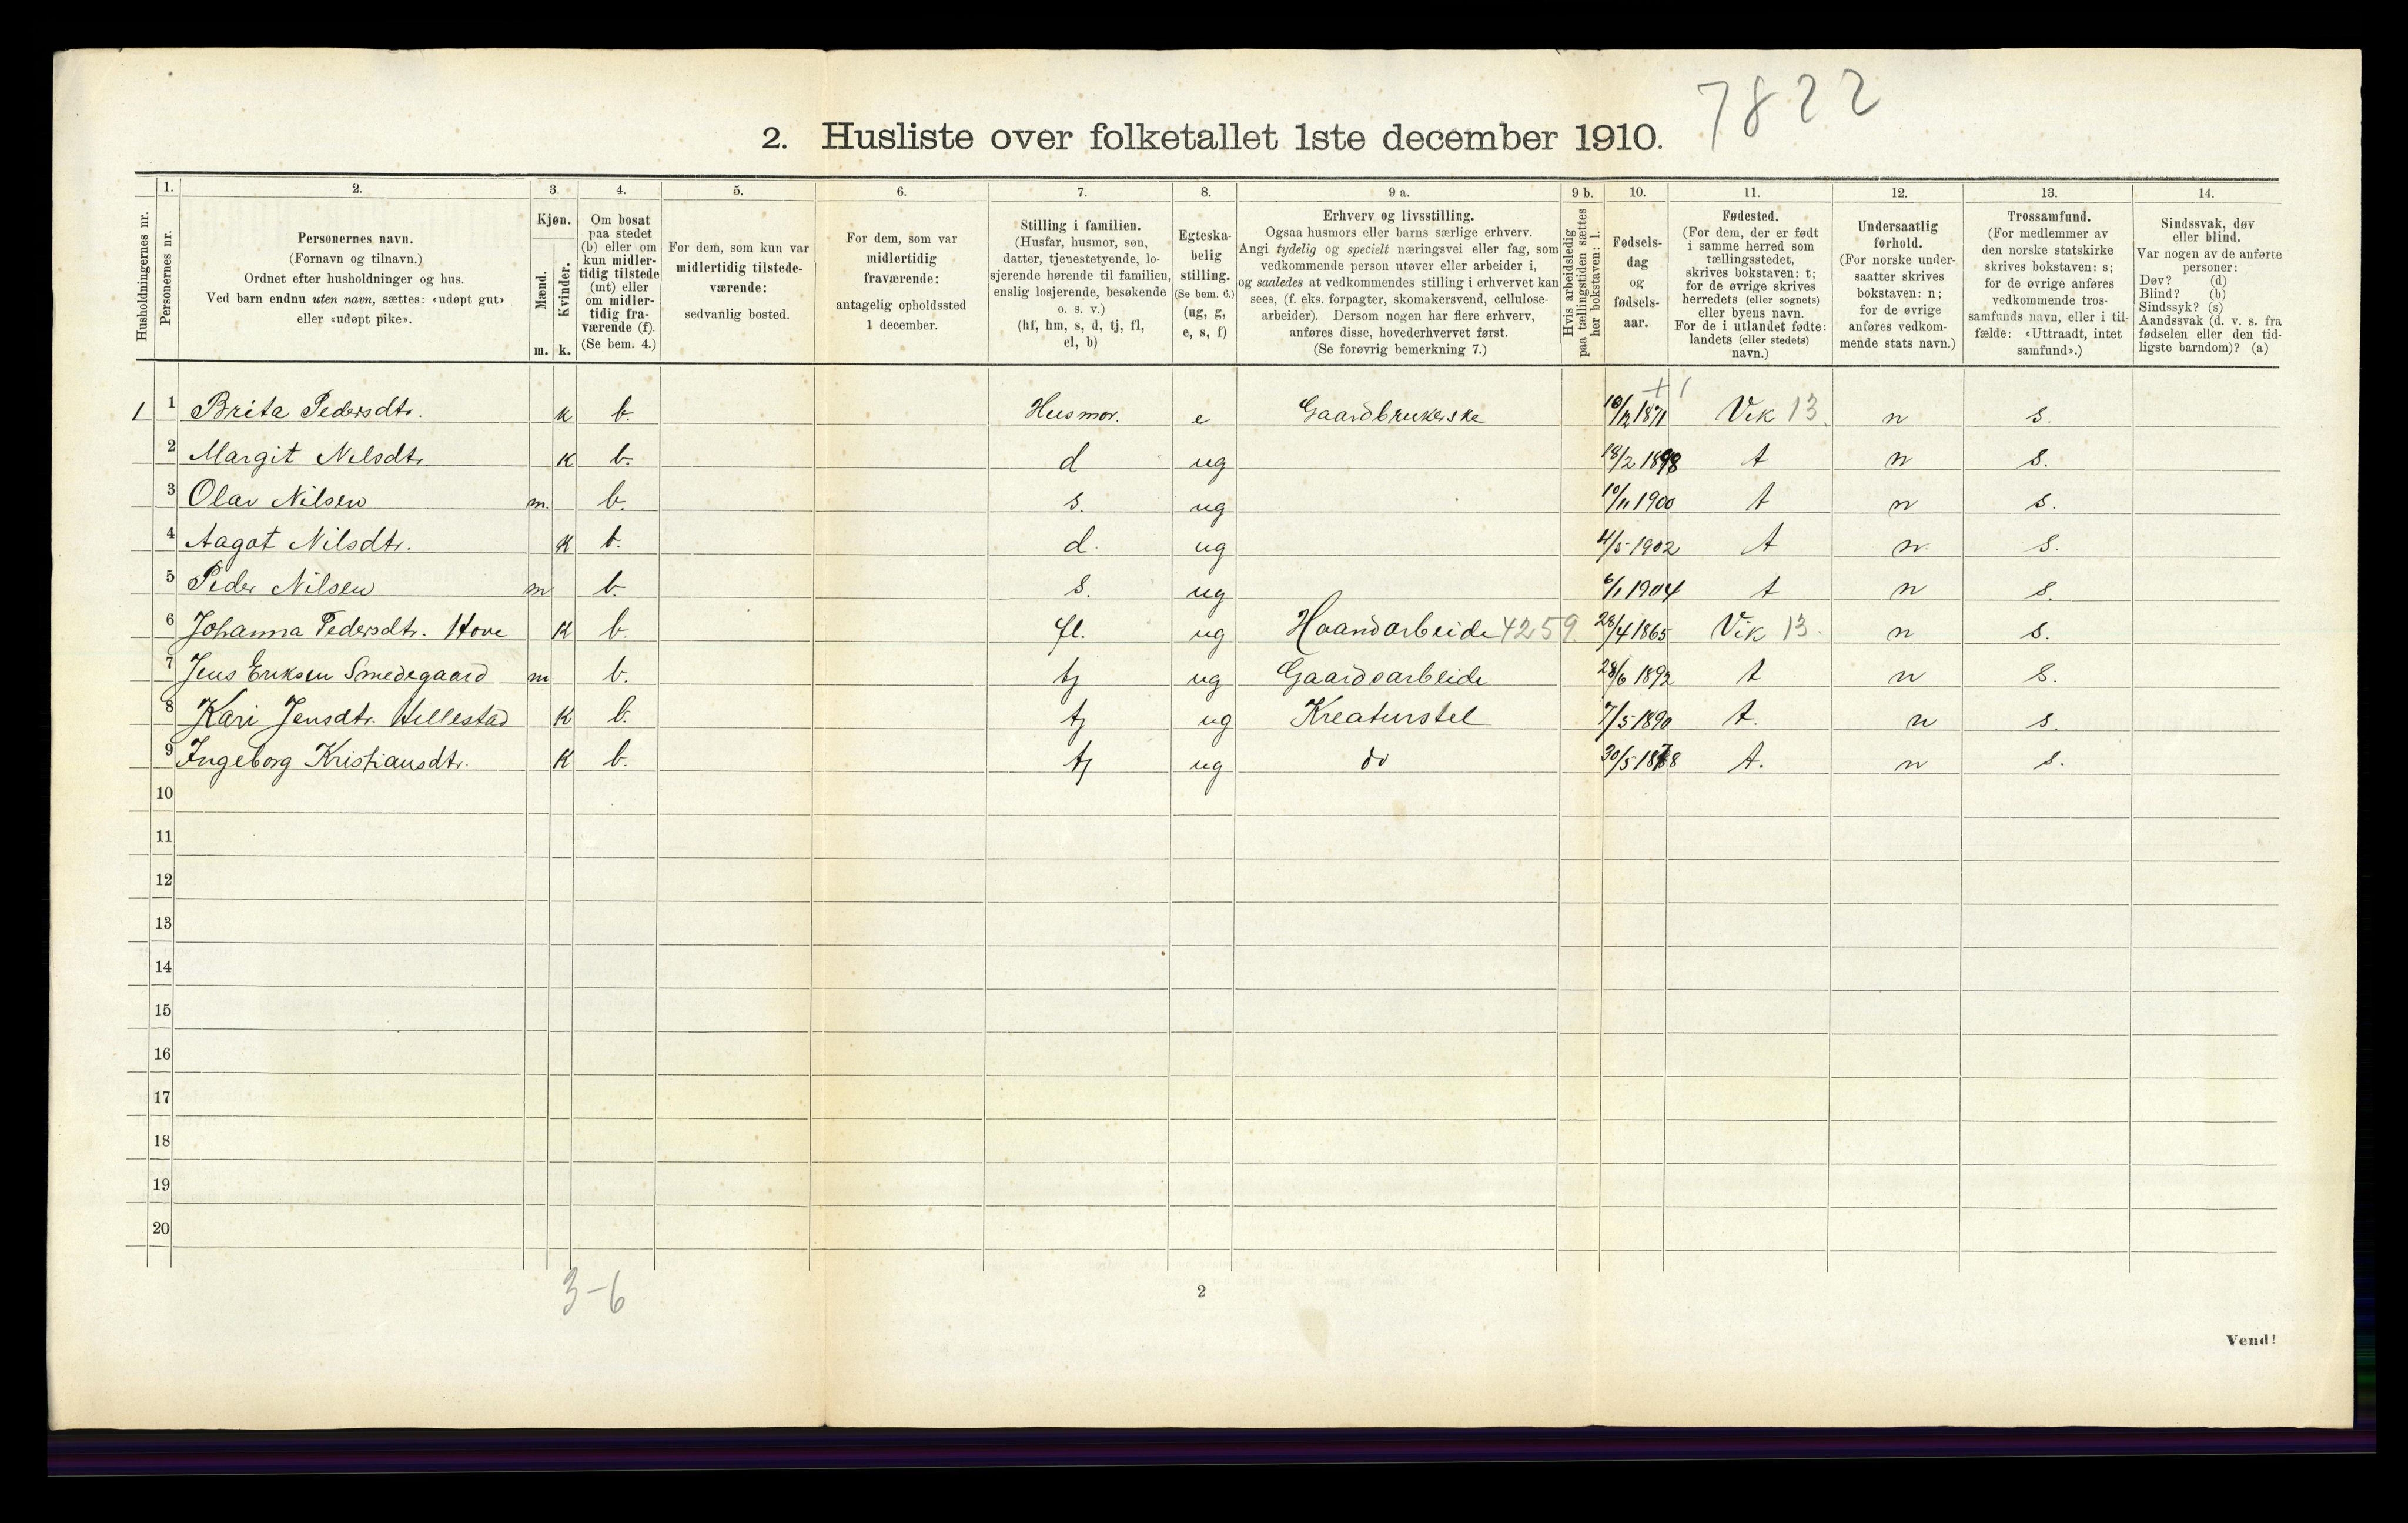 7822
2. Husliste over folketallet 1ste december 1910.
Husholdningernes nr.
1.
Personernes nr.
2.
Personernes navn.
(Fornavn og tilnavn.)
Ordnet efter husholdninger og hus.
Ved barn endnu uten navn, sættes: «udøpt gut»
eller «udøpt pike».
3.
Kjøn.
Mænd.
Kvinder.
m. k.
4.
Om bosat
paa stedet
(b) eller om
kun midler-
tidig tilstede
(mt) eller
om midler-
tidig fra-
værende (f).
(Se bem. 4.)
5.
For dem, som kun var
midlertidig tilstede-
værende:
sedvanlig bosted.
6.
For dem, som var
midlertidig
fraværende:
antagelig opholdssted
1 december.
7.
Stilling i familien.
(Husfar, husmor, søn,
datter, tjenestetyende, lo-
sjerende hørende til familien,
enslig losjerende, besøkende
o. s. v.)
(hf, hm, s, d, tj, fl,
el, b)
8.
Egteska-
belig
stilling.
(Se bem. 6.)
(ug, g,
e, s, f)
9 a.
Erhverv og livsstilling.
Ogsaa husmors eller barns særlige erhverv.
Angi tydelig og specielt næringsvei eller fag, som
vedkommende person utøver eller arbeider i,
og saaledes at vedkommendes stilling i erhvervet kan
sees, (f. eks. forpagter, skomakersvend, cellulose-
arbeider). Dersom nogen har flere erhverv,
anføres disse, hovederhvervet først.
(Se forøvrig bemerkning 7.)
9 b.
Hvis arbeidsledig
paa tællingstiden sættes
her bokstaven: l.
10.
Fødsels-
dag
og
fødsels-
aar.
11.
Fødested.
(For dem, der er født
i samme herred som
tællingsstedet,
skrives bokstaven: t;
for de øvrige skrives
herredets (eller sognets)
eller byens navn.
For de i utlandet fødte:
landets (eller stedets)
navn.)
12.
Undersaatlig
forhold.
(For norske under-
saatter skrives
bokstaven: n;
for de øvrige
anføres vedkom-
mende stats navn.)
13.
Trossamfund.
(For medlemmer av
den norske statskirke
skrives bokstaven: s;
for de øvrige anføres
vedkommende tros-
samfunds navn, eller i til-
fælde: «Uttraadt, intet
samfund».)
14.
Sindssvak, døv
eller blind.
Var nogen av de anførte
personer:
Døv? (d)
Blind? (b)
Sindssyk? (s)
Aandssvak (d. v. s. fra
fødselen eller den tid-
ligste barndom)? (a)
1 1 Brita Pedersdtr. k b. Husmor. e Gaardbrukerske 10/12 1871 Vik 13 n s.
2 Margit Nilsdtr. k b. d ug 18/2 1898 t n s.
3 Olav Nilsen m. b. s. ug 10/11 1900 t n s.
4 Aagot Nilsdtr. k b. d. ug 4/5 1902 t n s.
5 Peder Nilsen m b. s. ug 6/1 1904 t n s.
6 Johanna Pedersdtr. Hove k b. fl. ug Haandarbeide 4259 28/4 1865 Vik 13 n s.
7 Jens Eriksen Smedegaard m b. tj ug Gaardsarbeide 28/6 1892 t n s.
8 Kari Jensdtr. Hellestad k b. tj ug Kreaturstel 7/5 1890 t. n s.
9 Ingeborg Kristiansdtr. k b. tj ug do 30/5 t. n s.
10
11
12
13
14
15
16
17
18
19
20
3-6
2
Vend!